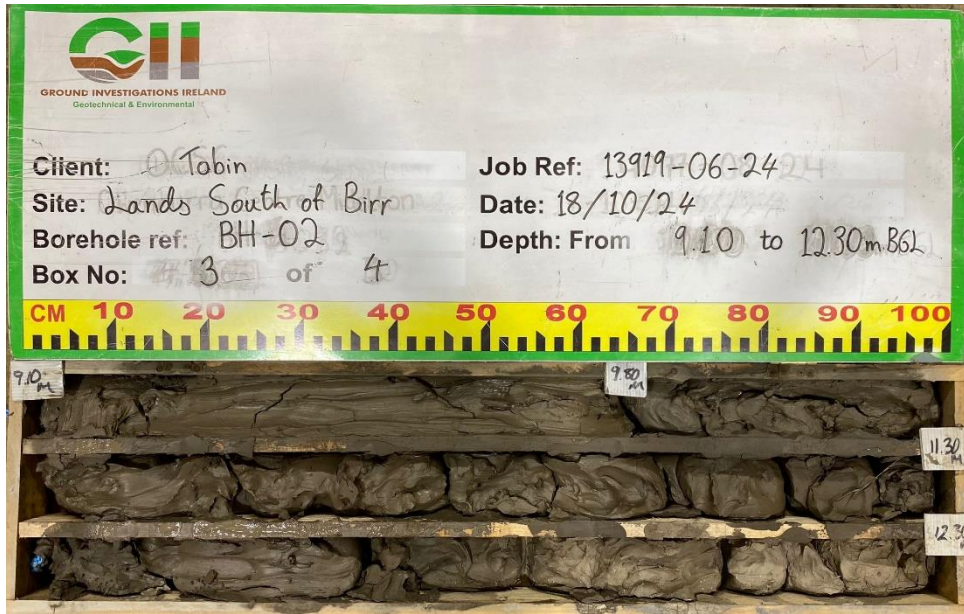 GII
GROUND INVESTIGATIONS IRELAND
Geotechnical & Environmental
Client: Tobin
Site: Lands South of Birr
Borehole ref: BH-02
Box No: 3 of 4
Job Ref: 13919-06-24
Date: 18/10/24
Depth: From 9.10 to 12.30m BGL
CM 10 20 30 40 50 60 70 80 90 100
9.10 M
9.80 M
11.30 M
12.30